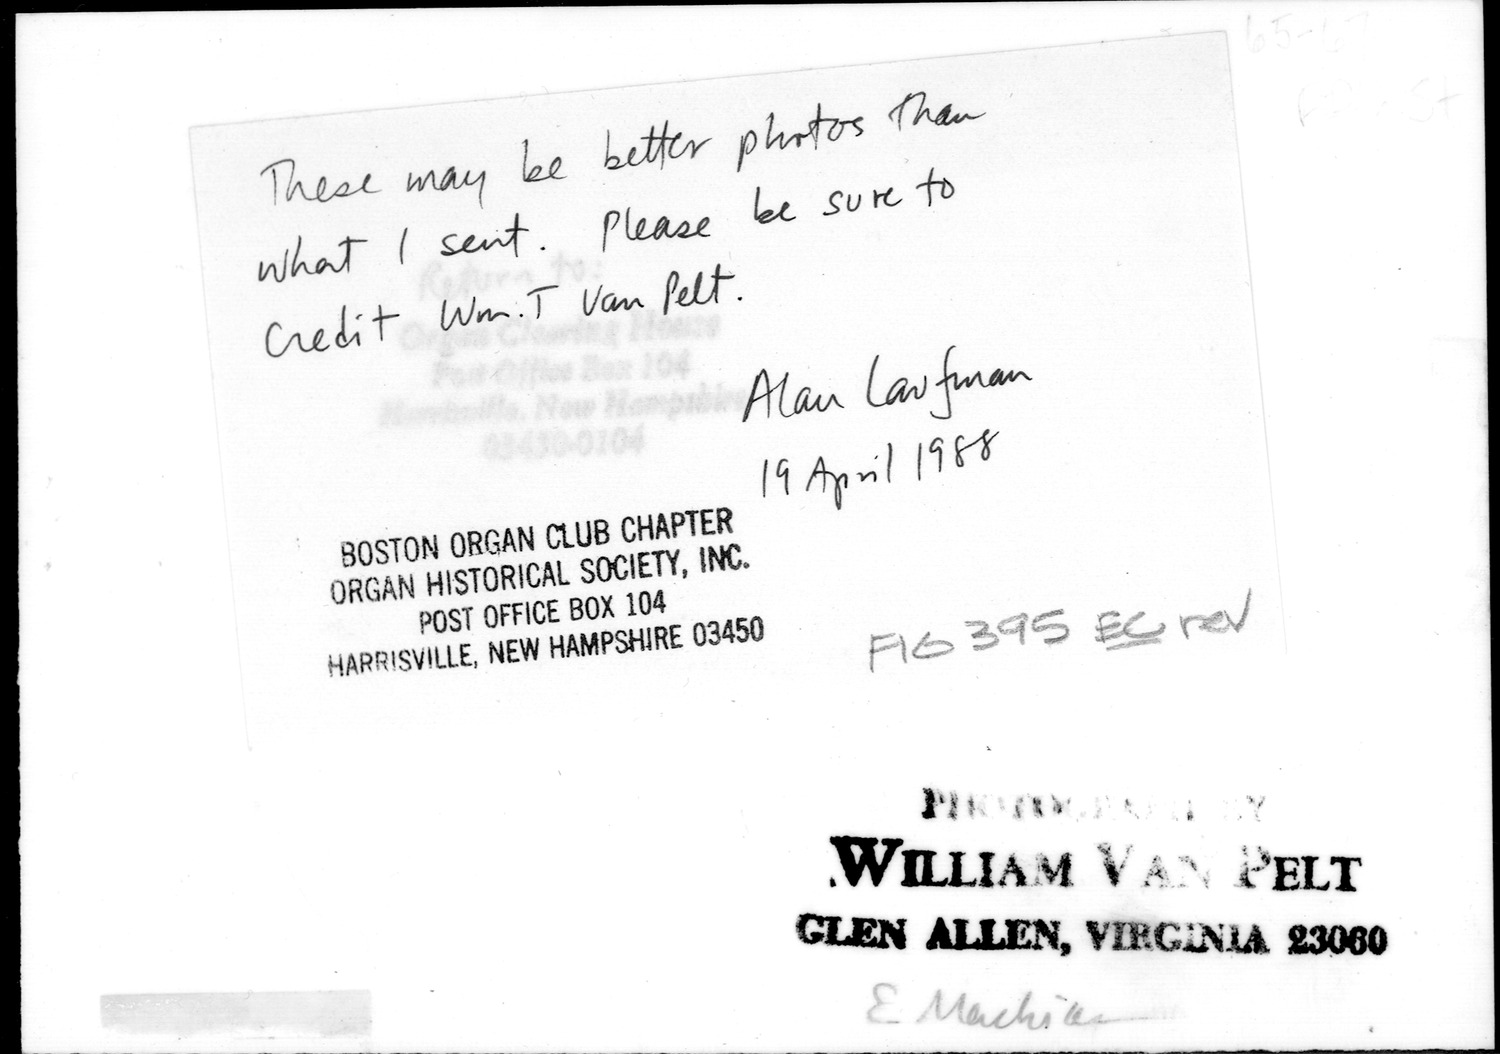 65-67
These may be better photos than
what I sent. Please be sure to
Credit Wm. T Van Pelt.
Return to:
Organ Clearing House
Post Office Box 104
Harrisville, New Hampshire
03450-0104
Alan Laufman
19 April 1988
BOSTON ORGAN CLUB CHAPTER
ORGAN HISTORICAL SOCIETY, INC.
POST OFFICE BOX 104
HARRISVILLE, NEW HAMPSHIRE 03450
FIG 395 EC rev
PHOTOGRAPH BY
WILLIAM VAN PELT
GLEN ALLEN, VIRGINIA 23060
E Machias